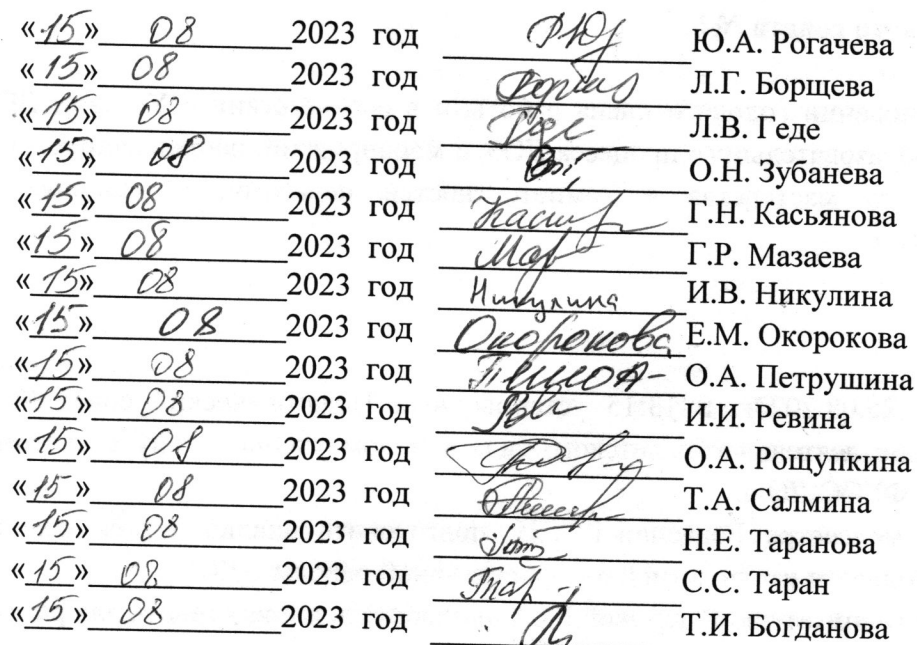 «15» 08 2023 год Ю.А. Рогачева
«15» 08 2023 год Л.Г. Борщева
«15» 08 2023 год Л.В. Геде
«15» 08 2023 год О.Н. Зубанева
«15» 08 2023 год Г.Н. Касьянова
«15» 08 2023 год Г.Р. Мазаева
«15» 08 2023 год Никулина И.В. Никулина
«15» 08 2023 год Окорокова Е.М. Окорокова
«15» 08 2023 год О.А. Петрушина
«15» 08 2023 год И.И. Ревина
«15» 08 2023 год О.А. Рощупкина
«15» 08 2023 год Т.А. Салмина
«15» 08 2023 год Н.Е. Таранова
«15» 08 2023 год С.С. Таран
«15» 08 2023 год Т.И. Богданова